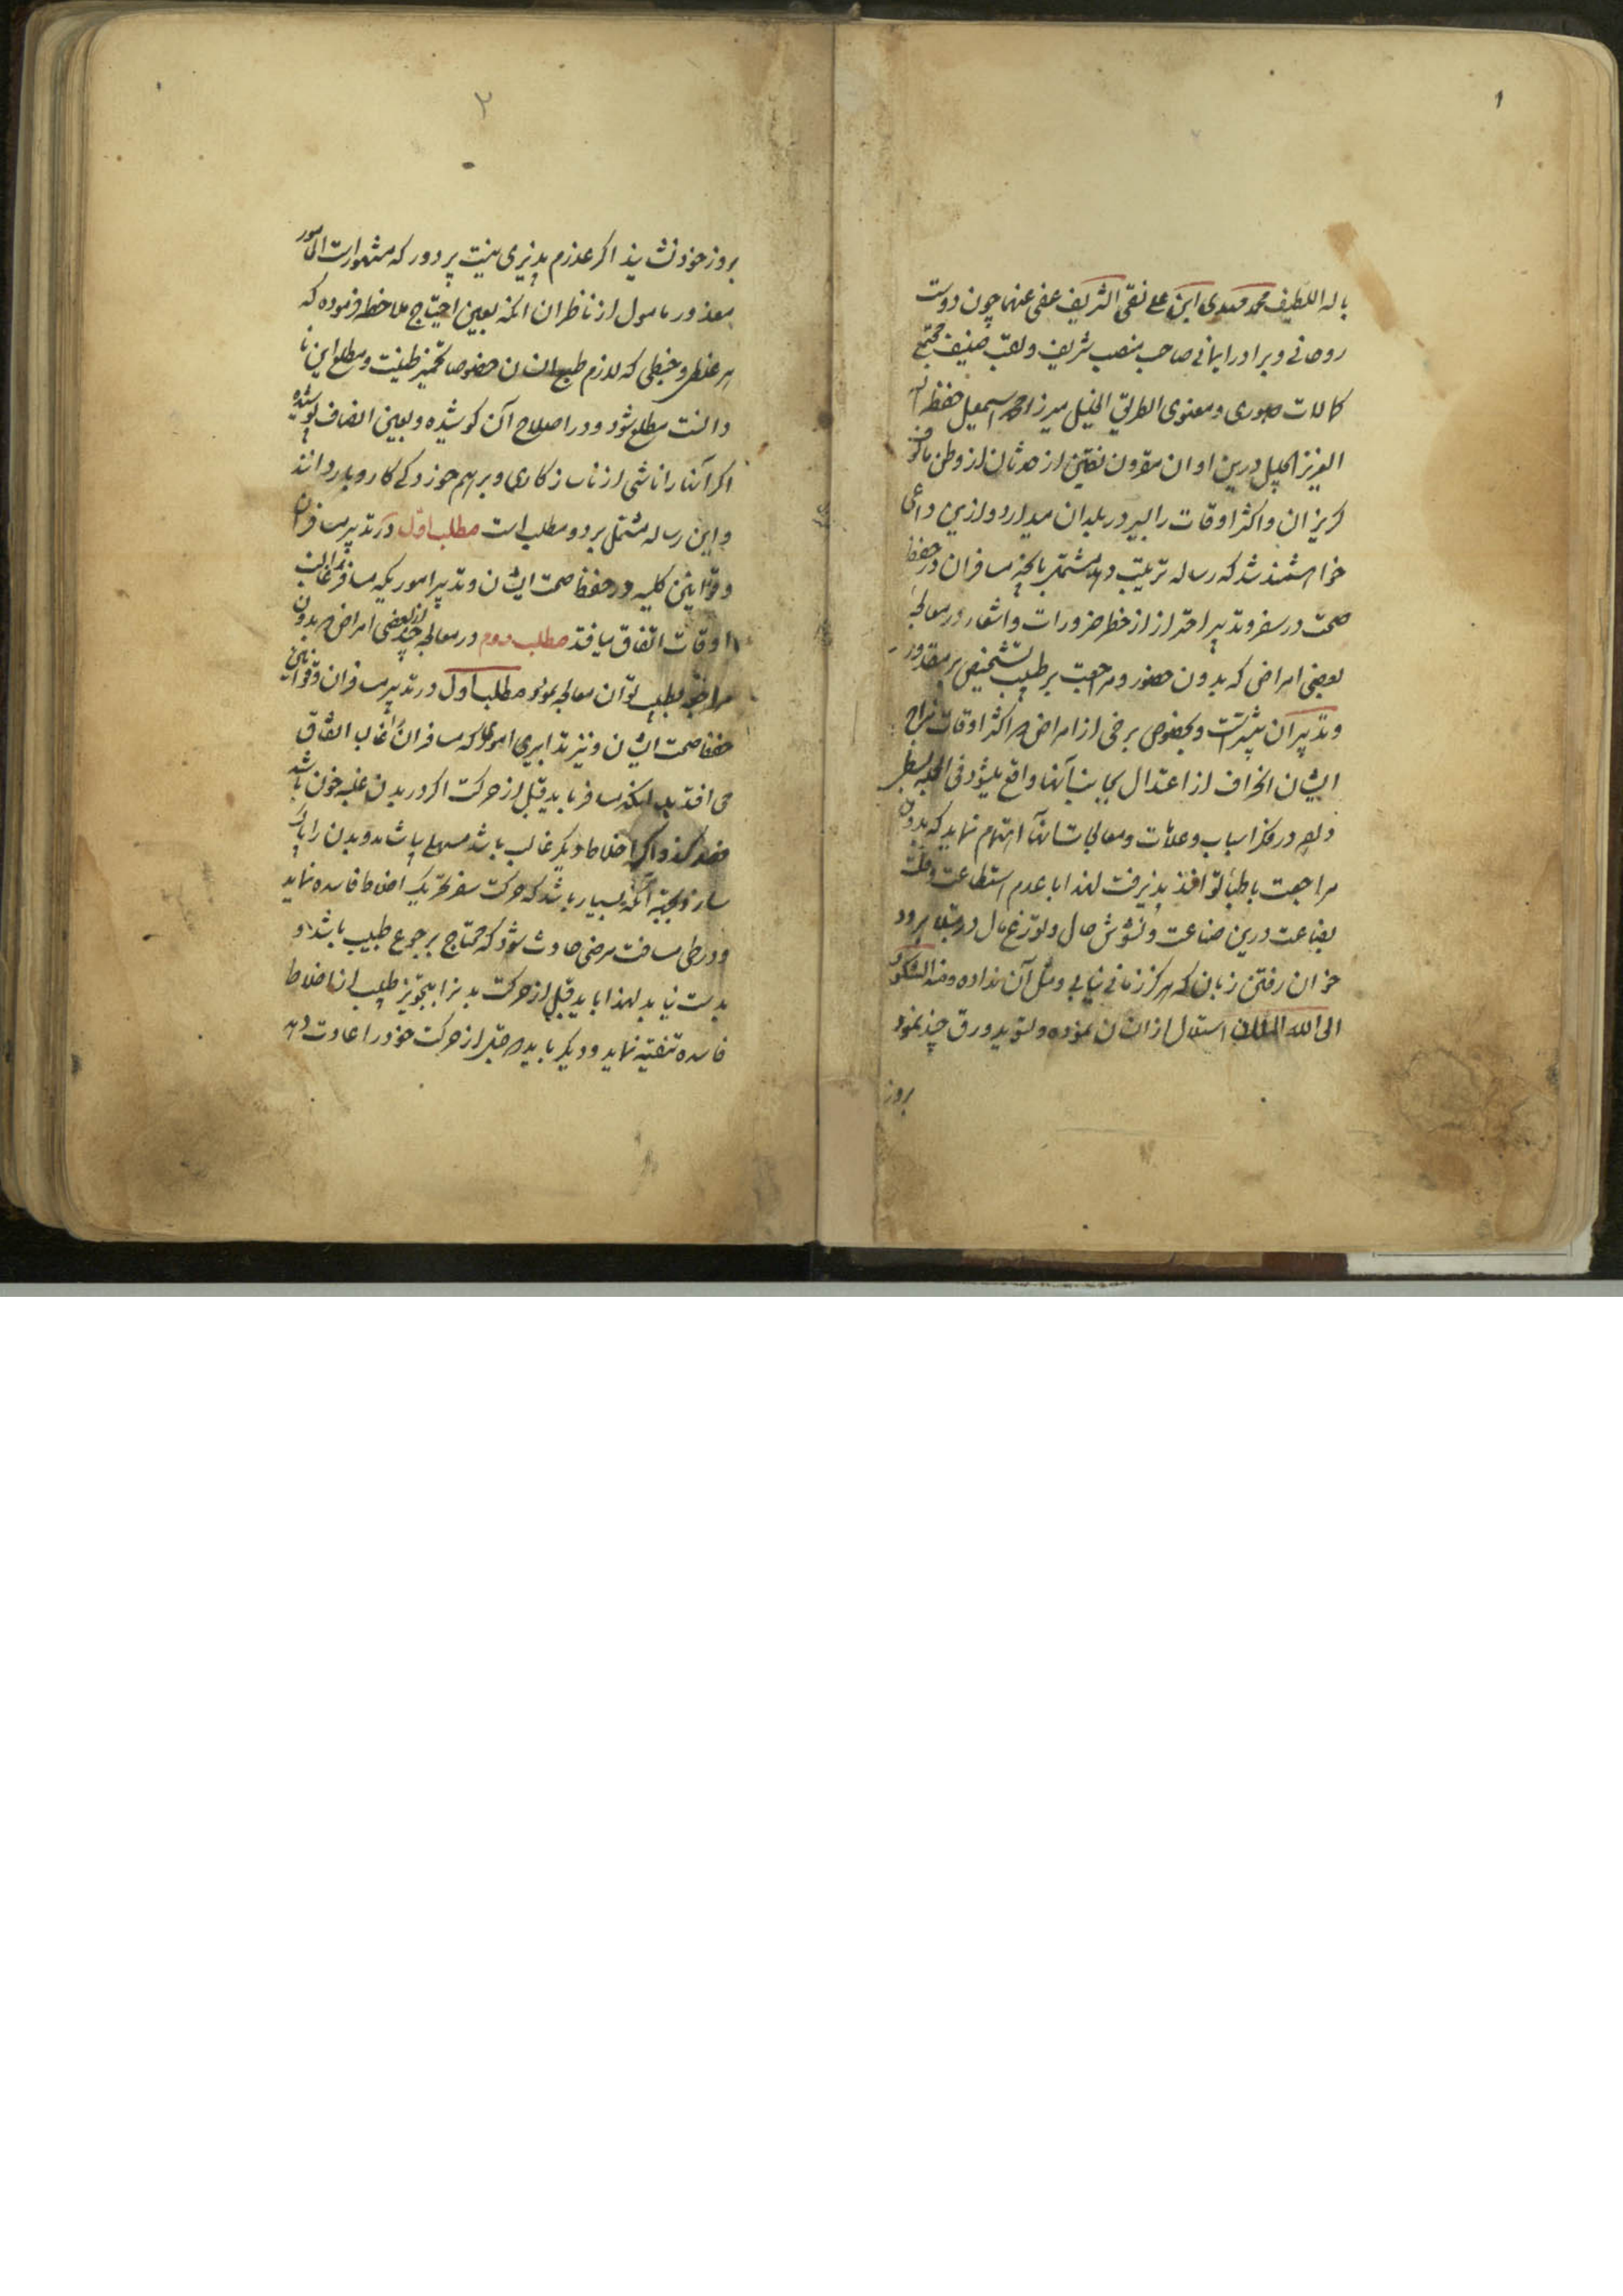 ۱
باله اللطیف محمد مهدی ابن علی نقی الشریف عفی عنهما چون دوست
روحانی و برادر ایمانی صاحب منصب شریف و لقب منیف مجتمع
کمالات صوری و معنوی میرزا محمد اسمعیل حفظه
العزیز الجلیل درین اوان از حدثان از وطن مالوف
کریزان و اکثر اوقات را بسیر در بلدان میدارد و ازین داعی
خواهشمند شد که رساله ترتیب دهد مشتمل بانچه مسافران در حفظ
صحت در سفر و تدبیر احتراز از خطر ضرورات و اشعار در معالجه
بعضی امراض که بدون حضور و مراجعت بر طبیب تشخیص بر مقدور
و تدبیر آن میسر است و بخصوص برخی از امراض که اکثر اوقات مزاج
ایشان انحراف از اعتدال بجانب آنها واقع میشود فی الجمله بسطی
دهد در ذکر اسباب و علامات و معالجات آنها اهتمام نماید که بدون
مراجعت باطبا تواند پذیرفت لهذا با عدم استطاعت و قلت
بضاعت درین صناعت و تشوش حال و توزع بال
خزان رفتن زبان که هرکز زمانی نیابی و مثل آن نداده و منه الشکوی
الی الله الملک از انسان نموده و تسوید ورق چند نمود
بروز
۲
بروز خود نشاند اکر عذرم پذیری نیت پر دور که مشهور است المامور
معذور مامول از ناظران آنکه بعین احتیاج ملاحظه فرموده که
هر غلطی و خبطی که لازم طبع انسان خصوصا تخمیر طینت و مطلع این نا
دانست مطلع شود و در اصلاح آن کوشیده و بعین انصاف پوشیده
اکر آنها را ناشی از ناسازکاری و برهم خوردکی کار و بار دانند
و این رساله مشتمل بر دو مطلب است مطلب اول در تدبیر مسافران
و قوانین کلیه در حفظ صحت ایشان و تدبیر اموریکه مسافر را غالب
اوقات اتفاق میافتد مطلب دوم در معالجه چند از بعضی امراض که بدون
مراجعه بطبیب توان معالجه نمود مطلب اول در تدبیر مسافران و قوانین
حفظ صحت ایشان و نیز تدابیری اموری که مسافران را غالب اتفاق
می افتد بدانکه مسافر باید قبل از حرکت اکر در بدن غلبه خون باشد
فصد کند و اکر اخلاط دیکر غالب باشد مسهلی باشد و بدن را پاک
سازد بجهة آنکه بسیار باشد که حرکت سفر تحریک اخلاط فاسده نماید
و در طی مسافت مرضی حادث شود که محتاج برجوع طبیب باشد و
بدست نیاید لهذا باید قبل از حرکت بدن را بتجویز طبیب از اخلاط
فاسده تنقیه نماید و دیکر باید که قبل از حرکت خود را عادت دهد